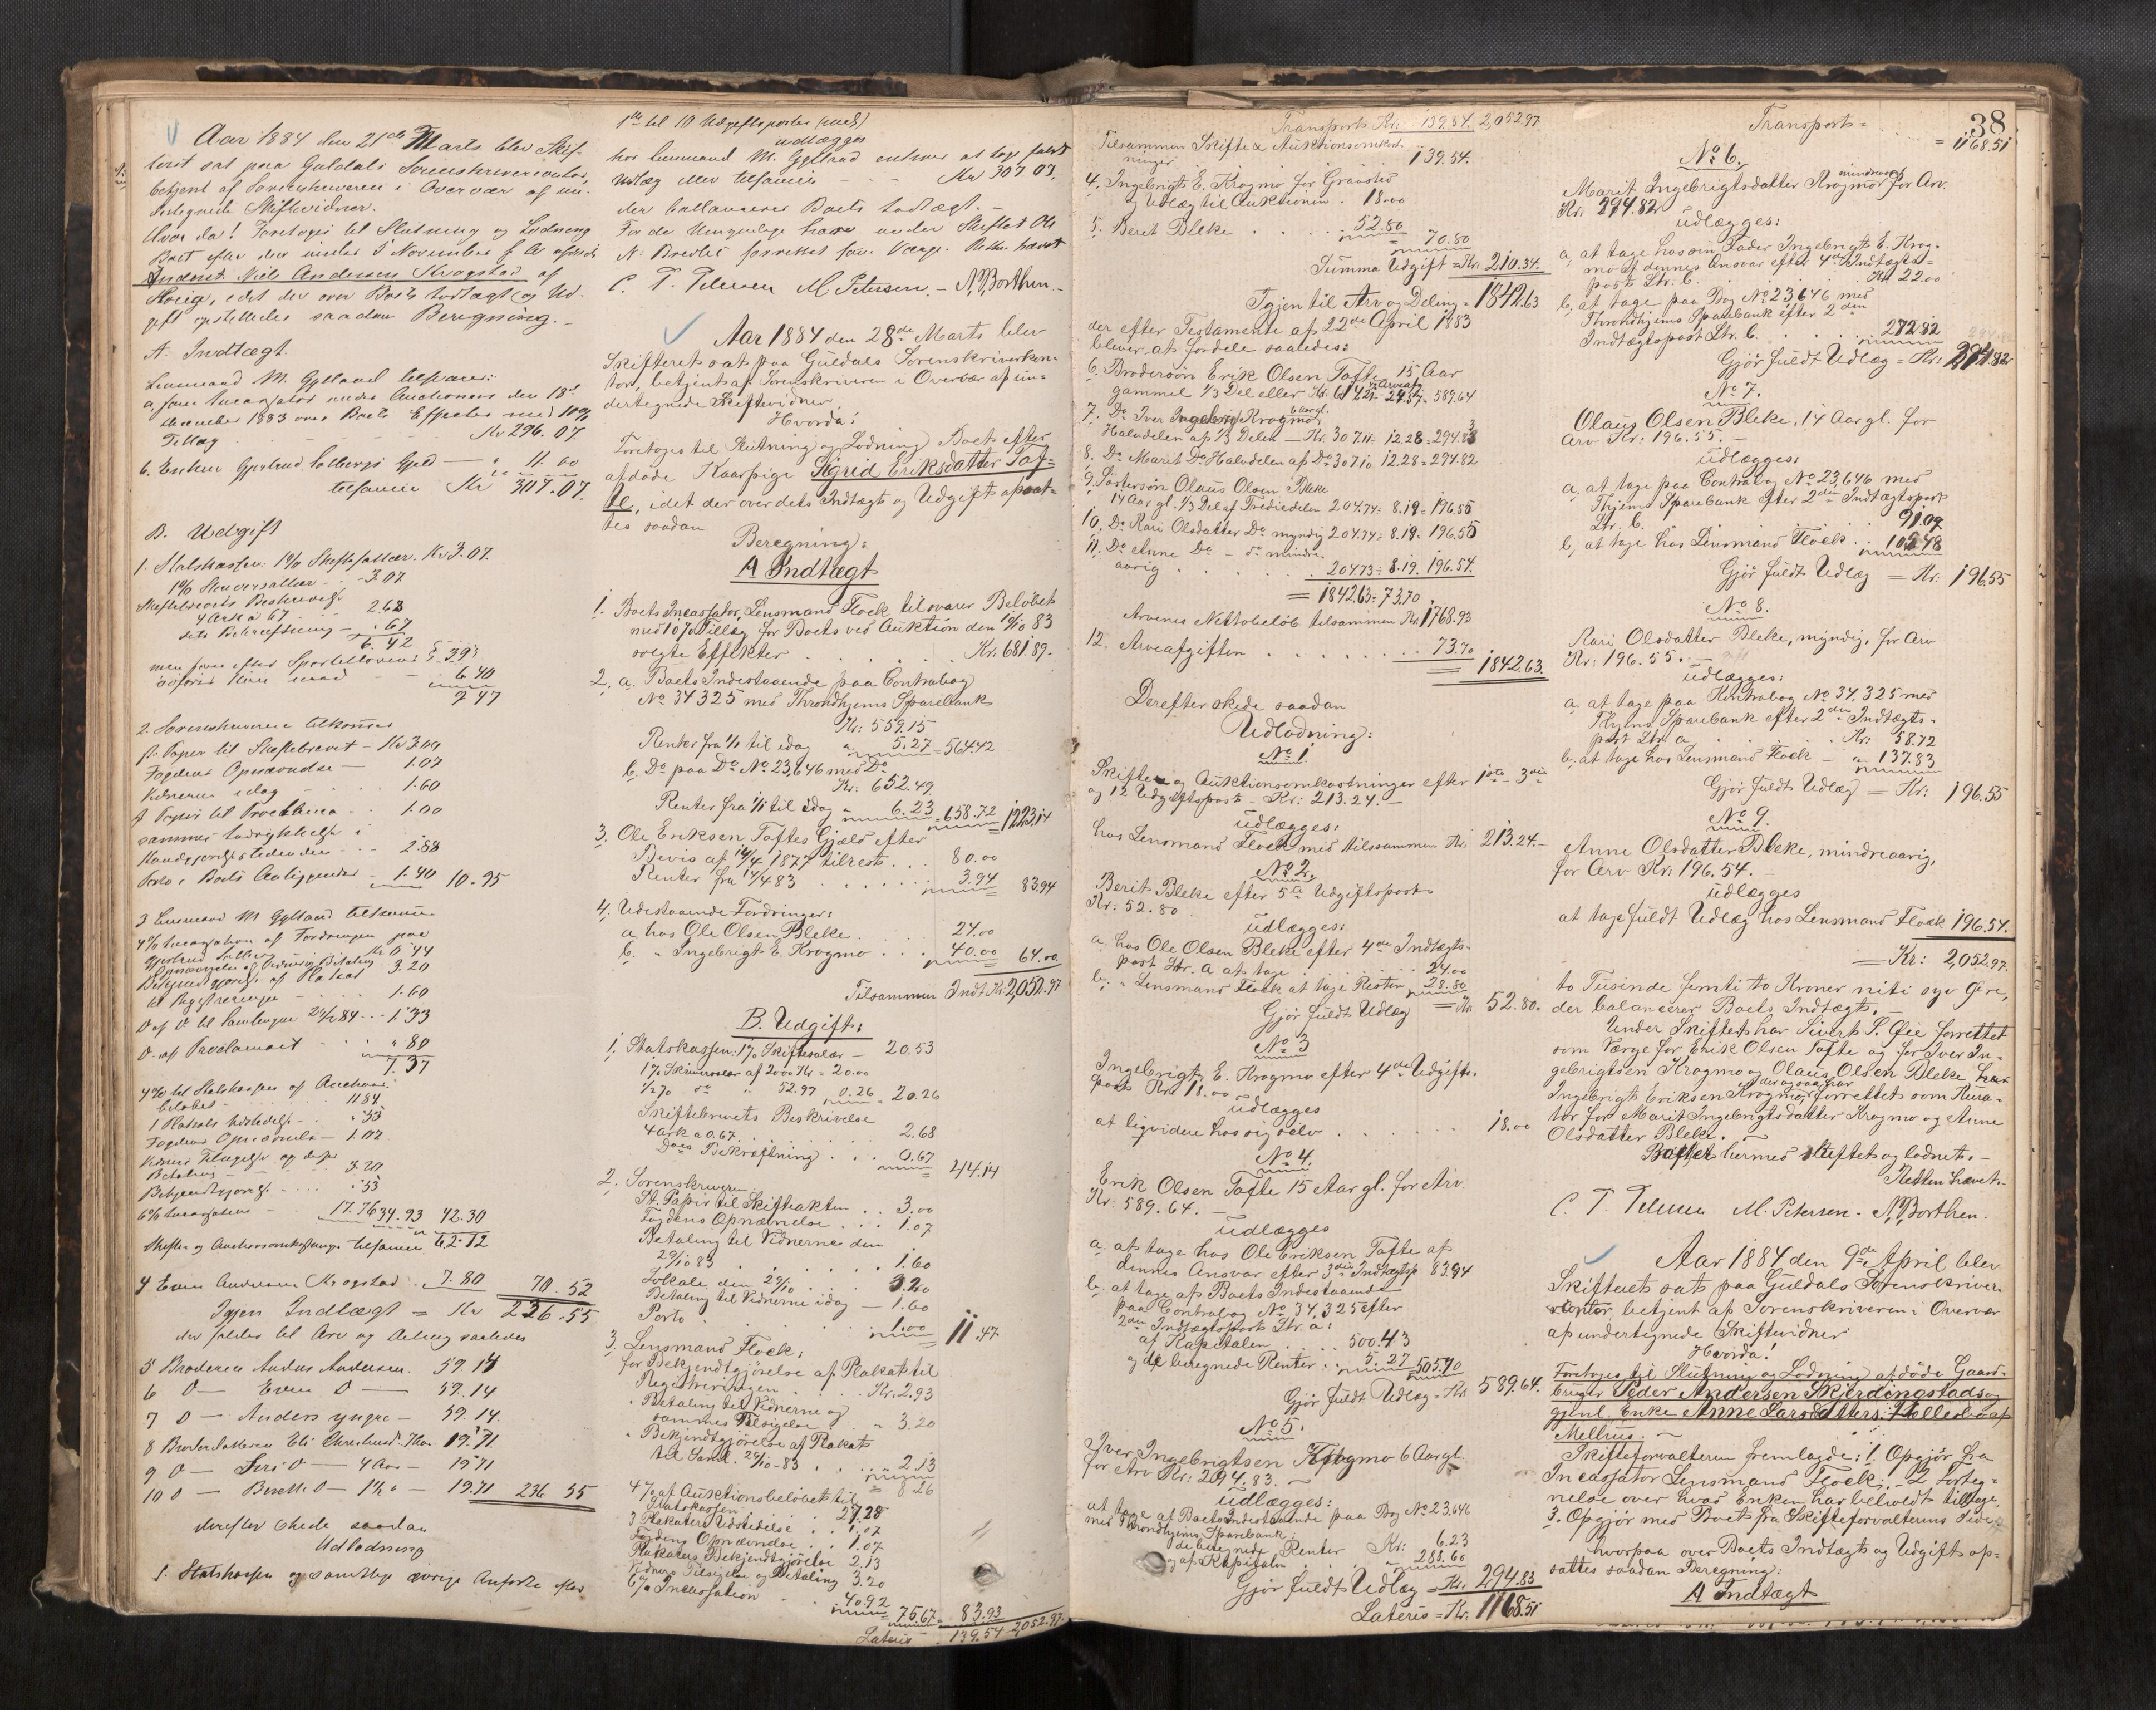 Aar 1884 den 21de Marts blev Skif-
teret sat paa Guldals Sorenskrivercontor,
betjent af Sorenskriveren i Overvær af un-
dertegnede Skiftevidner.
Hvor da! Foretoges til Slutning og Lodning
Boet efter den under 5 November f. A. afdøde
Inderst Niels Andersen Krogstad af
Horg, idet der over Boets Indtægt og Ud-
gift opstilledes saadan Beregning.
A. Indtægt.
Lensmand M. Gylland tilsvarer:
a, som Incassator under Auctionen den 18de
December 1883 over Boets Effecter med 10%
Tillæg Kr 296.07.
b. Enken Gjertrud Solbergs Gjeld — " 11.00
tilsammen Kr 307.07.
B. Udgift
1. Statskassen: 1% Skiftesallær. Kr 3.07.
1% Skriversallær - 3.07
Skiftebrevets Beskrivelse
4 Ark a 67 - 2.68
dets Bekræftning - .67
6.42
men som efter Sportelloven § 39
6.40
9.47
2. Sorenskriveren tilkommer
st. Papir til Skiftebrevet - Kr 3.00
Fogdens Opnævnelse — 1.07
Vidnerne idag - 1.60
st Papir til Proclama - 1.00
sammes Indrykkelse i
Kundgjørelsestidenden - 2.88
Porto i Boets Anliggender - 1.40 10.95
3 Lensmand M Gylland tilkommer
4% Incassation af Fordringen paa
Gjertrud Solberg Kr 0.44
Opnævnelse af Vidner og Betaling 3.20
Bekjendtgjørelse af Plakat
til Registreringen - 1.60
D af D til Samlingen 21/2 84 - 1.33
D. af Proclamaet " 80
7.37
4% til Statskassen af Auctions-
beløbet 11.84
1 Plakats Udstedelse - " 53
Fogdens Opnævnelse - 1.07
Vidners Tilsigelse og deres
Betaling - 3.20
Bekjendtgjørelse " 53
6% Incassation 17.76 34.93 42.30
Skifte og Auctionsomkostninger tilsammen 62.72
4 Even Andersen Krogstad 7.80 70.52
Igjen Indtægt = Kr 236.55
der falder til Arv og Deling saaledes
5 Broderen Anders Andersen. 59.14
6 D— Even D— 59.14
7 D— Anders yngre - 59.14.
8 Broderdatteren Eli 19.71
9 D— Siri D— 4 Aar — 19.71
10 D — Berette D — 1½ " — 19.71 236.55
derefter skede saadan
Udlodning
1. Statskassen og samtlige øvrige Anførte efter
1ste til 10 Udgiftsposter (incl)
udlægges
hos Lensmand M. Gylland enhver at tage fuldt
Udlæg eller tilsammen - - Kr 307.07.
der ballancerer Boets Indtægt. -
For de Umyndige har under Skiftet Ole
N. Bredli forrettet som Værge. Retten hævet
C. T. Petersen M Petersen. - N. Borthen. -
Aar 1884 den 28de Marts blev
Skifteret sat paa Guldals Sorenskriverkon-
tor, betjent af Sorenskriveren i Overvær af un-
dertegnede Skiftevidner
Hvorda!
Foretoges til Slutning og Lodning Boet efter
afdøde Kaarpige Sigrid Eriksdatter Taf-
te, idet der over dets Indtægt og Udgift opsat-
tes saadan
Beregning:
A Indtægt
1. Boets Incassator, Lensmand Flock tilsvarer Beløbet
med 10% Tillæg for Boets ved Auktion den 19/10 83
solgte Effekter . . . Kr. 681.89.
2. a. Boets Indestaaende paa Contrabog
No 34325 med Throndhjems Sparebank
Kr: 559.15
Renter fra 1/1 til idag " 5.27 = 564.42
b. Do paa Do No 23,646 med Do
Kr: 652.49
Renter fra 1/1 til idag " 6.23 658.72 1223.14
3. Ole Eriksen Taftes Gjæld efter
Bevis af 14/4 1877 tilrest . . . 80.00
Renter fra 14/4 83 . . . 3.94 83.94
4. Udestaaende Fordringer:
a. hos Ole Olsen Bleke . . 24.00
b. " Ingebrigt E. Krogmo . . . 40.00 64.00.
Tilsammen Indt. Kr. 2,052.97
B. Udgift:
1. Statskassen: 1% Skiftesalær — 20.53
1% Skriversalær af 2000 Kr = 20.00
½% do " 52.97 0.26 = 20.26
Skiftebrevets Beskrivelse
4 Ark a 0.67 . . . 2.68
Dets Bekræftning . . . 0.67 44.14
2. Sorenskriveren
St. Papir til Skifteakten . . 3.00
Fogdens Opnævnelse . . . 1.07
Betaling til Vidnerne den
29/10 83 . . . 1.60
Lokale den 29/10 . . . 3.20
Betaling til Vidnerne idag — 1.60
Porto . . . 1.00 11.47
3. Lensmand Flock:
for Bekjendtgjørelse af Plakat til
Registreringen . . . Kr. 2.93
" Betaling til Vidnerne og
sammes Tilsigelse " 3.20
" Bekjendtgjørelse af Plakat
til Saml. 29/10-83 . . . 2.13
= 8.26
4% af Auktionsbeløbet til
Statskassen . . 27.28
3 Plakaters Udstedelse . . 1.07
Fogdens Opnævnelse . . 1.07
Plakatens Bekjendtgjørelse 2.13
Vidners Tilsigelse og Betaling 3.20
6% Incassation . . 40.92
75.67 = 83.93
Lateris 139.54 2,052.97.
Transport Kr: 139.54. 2,052.97.
Tilsammen Skifte & Auktionsomkost-
ninger . . . 139.54.
4. Ingebrigt E. Krogmo for Gravsted
og Udlæg til Auktionen . 18.00
5. Berit Bleke . . . 52.80
70.80
Summa Udgift = Kr. 210.34.
Igjen til Arv og Deling = 1842.63
der efter Testamente af 22de April 1883
bliver at fordele saaledes:
6. Brodersøn Erik Olsen Tafte 15 Aar
gammel 1/3 Del eller Kr. 614.21 ÷ Arveafg. 24.57 = 589.64
7. Do Iver Ingebrigtsen Krogmo 6 Aar gl.
Halvdelen af 1/3 Delen — Kr. 307.11 ÷ 12.28 = 294.83
8. Do Marit Do Halvdelen af Do 307.10 12.28 = 294.82
9. Søstersøn Olaus Olsen Bleke
14 Aar gl. 1/3 Del af Trediedelen 204.74 ÷ 8.19 = 196.55
10. Do Kari Olsdatter Do myndig 204.74 ÷ 8.19 = 196.55
11. Do Anne Do — do mindre-
aarig . . . 204.73 ÷ 8.19. 196.54.
= 1842.63 ÷ 73.70.
Arvenes Nettobeløb tilsammen Kr. 1768.93
12. Arveafgiften . . . 73.70
1842.63.
Derefter skede saadan
Udlodning:
No 1
Skifte og Auktionsomkostninger efter 1ste - 3die
og 12 Udgiftspost - Kr: 213.24. -
udlægges:
hos Lensmand Flock med tilsammen Kr. 213.24.-
No 2.
Berit Bleke efter 5te Udgiftspost
Kr: 52.80
udlægges:
a. hos Ole Olsen Bleke efter 4de Indtægts-
post Ltr. a at tage . . . 24.00
b. " Lensmand Flock at tage Resten 28.80
Gjør fuldt Udlæg = Kr 52.80.
No 3
Ingebrigt E. Krogmo efter 4de Udgifts-
post Kr. 18.00
udlægges
at ligvidere hos sig selv . . . 18.00
No 4.
Erik Olsen Tafte 15 Aar gl. for Arv
Kr: 589.64. -
udlægges
a. at tage hos Ole Eriksen Tafte af
dennes Ansvar efter 3die Indtægtsp. 83.94
b. at tage af Boets Indestaaende
paa Contrabog No 34,325 efter
2den Indtægtspost Ltr. a:
af Kapitalen . . . 500.43
og de beregnede Renter . . 5.27 505.70
Gjør fuldt Udlæg = Kr. 589.64.
No 5.
Iver Ingebrigtsen Krogmo 6 Aar gl.
for Arv Kr: 294.83. -
udlægges:
at tage af Boets Indestaaende paa Bog No 23,646
med Throndhjems Sparebank
de beregnede Renter Kr: 6.23
og af Kapitalen . . . 288.60
Gjør fuldt Udlæg = Kr. 294.83
Lateris = Kr. 1168.51
38.
Transport = . . . = 1168.51
No 6.
Marit Ingebrigtsdatter Krogmo mindreaarig for Arv
Kr: 294.82
udlægges:
a, at tage hos sin Fader Ingebrigt E. Krog-
mo af dennes Ansvar efter 4de Indtægts-
post Ltr. b. . . . Kr. 22.00
b, at tage paa Bog No 23,646 med
Throndhjems Sparebank efter 2den
Indtægtspost Ltr. b. . . . 272.82
Gjør fuldt Udlæg = Kr: 294.82.
No 7.
Olaus Olsen Bleke, 14 Aar gl. for
Arv Kr: 196.55. -
udlægges:
a, at tage paa Contrabog No 23,646 med
Thjems Sparebank efter 2den Indtægtspost
Ltr. b. . . . 91.07
b, at tage hos Lensmand Flock . . 105.48
Gjør fuldt Udlæg = Kr: 196.55
No 8.
Kari Olsdatter Bleke, myndig, for Arv
Kr: 196.55. -
udlægges:
a, at tage paa Kontrabog No 34,325 med
Thjems Sparebank efter 2den Indtægts-
post Ltr. a . . . Kr: 58.72
b, at tage hos Lensmand Flock - " 137.83
Gjør fuldt Udlæg = Kr: 196.55
No 9.
Anne Olsdatter Bleke, mindreaarig,
for Arv Kr: 196.54. -
udlægges
at tage fuldt Udlæg hos Lensmand Flock 196.54.
= Kr: 2,052.97.
to Tusinde femti to Kroner niti syv Øre,
der balancerer Boets Indtægt. -
Under Skiftet har Sivert P. Gee forrettet
som Værge for Erik Olsen Tafte og for Iver In-
gebrigtsen Krogmo og Olaus Olsen Bleke
Ingebrigt Eriksen Krogmo, der ogsaa har forrettet som Kura-
tor for Marit Ingebrigtsdatter Krogmo og Anne
Olsdatter Bleke. -
Boet er hermed skiftet og lodnet. -
Retten hævet. -
C. T. Petersen M. Petersen. N. Borthen.
Aar 1884 den 9de April blev
Skifteret sat paa Guldals Sorenskriver-
contor, betjent af Sorenskriveren i Overvær
af undertegnede Skiftevidner
Hvorda!
Foretoges til Slutning og Lodning afdøde Gaard-
bruger Peder Andersen Skjerdingstads og
gjenl. Enke Anne Larsdatters Fællesbo af
Melhus. -
Skifteforvalteren fremlagde: 1. Opgjør fra
Incassator Lensmand Flock; - 2 Forteg-
nelse over hvad Enken har beholdt tilbage,
3. Opgjør med Boet fra Skifteforvalterens Side,
hvorpaa over Boets Indtægt og Udgift op-
sattes saadan Beregning:
A Indtægt